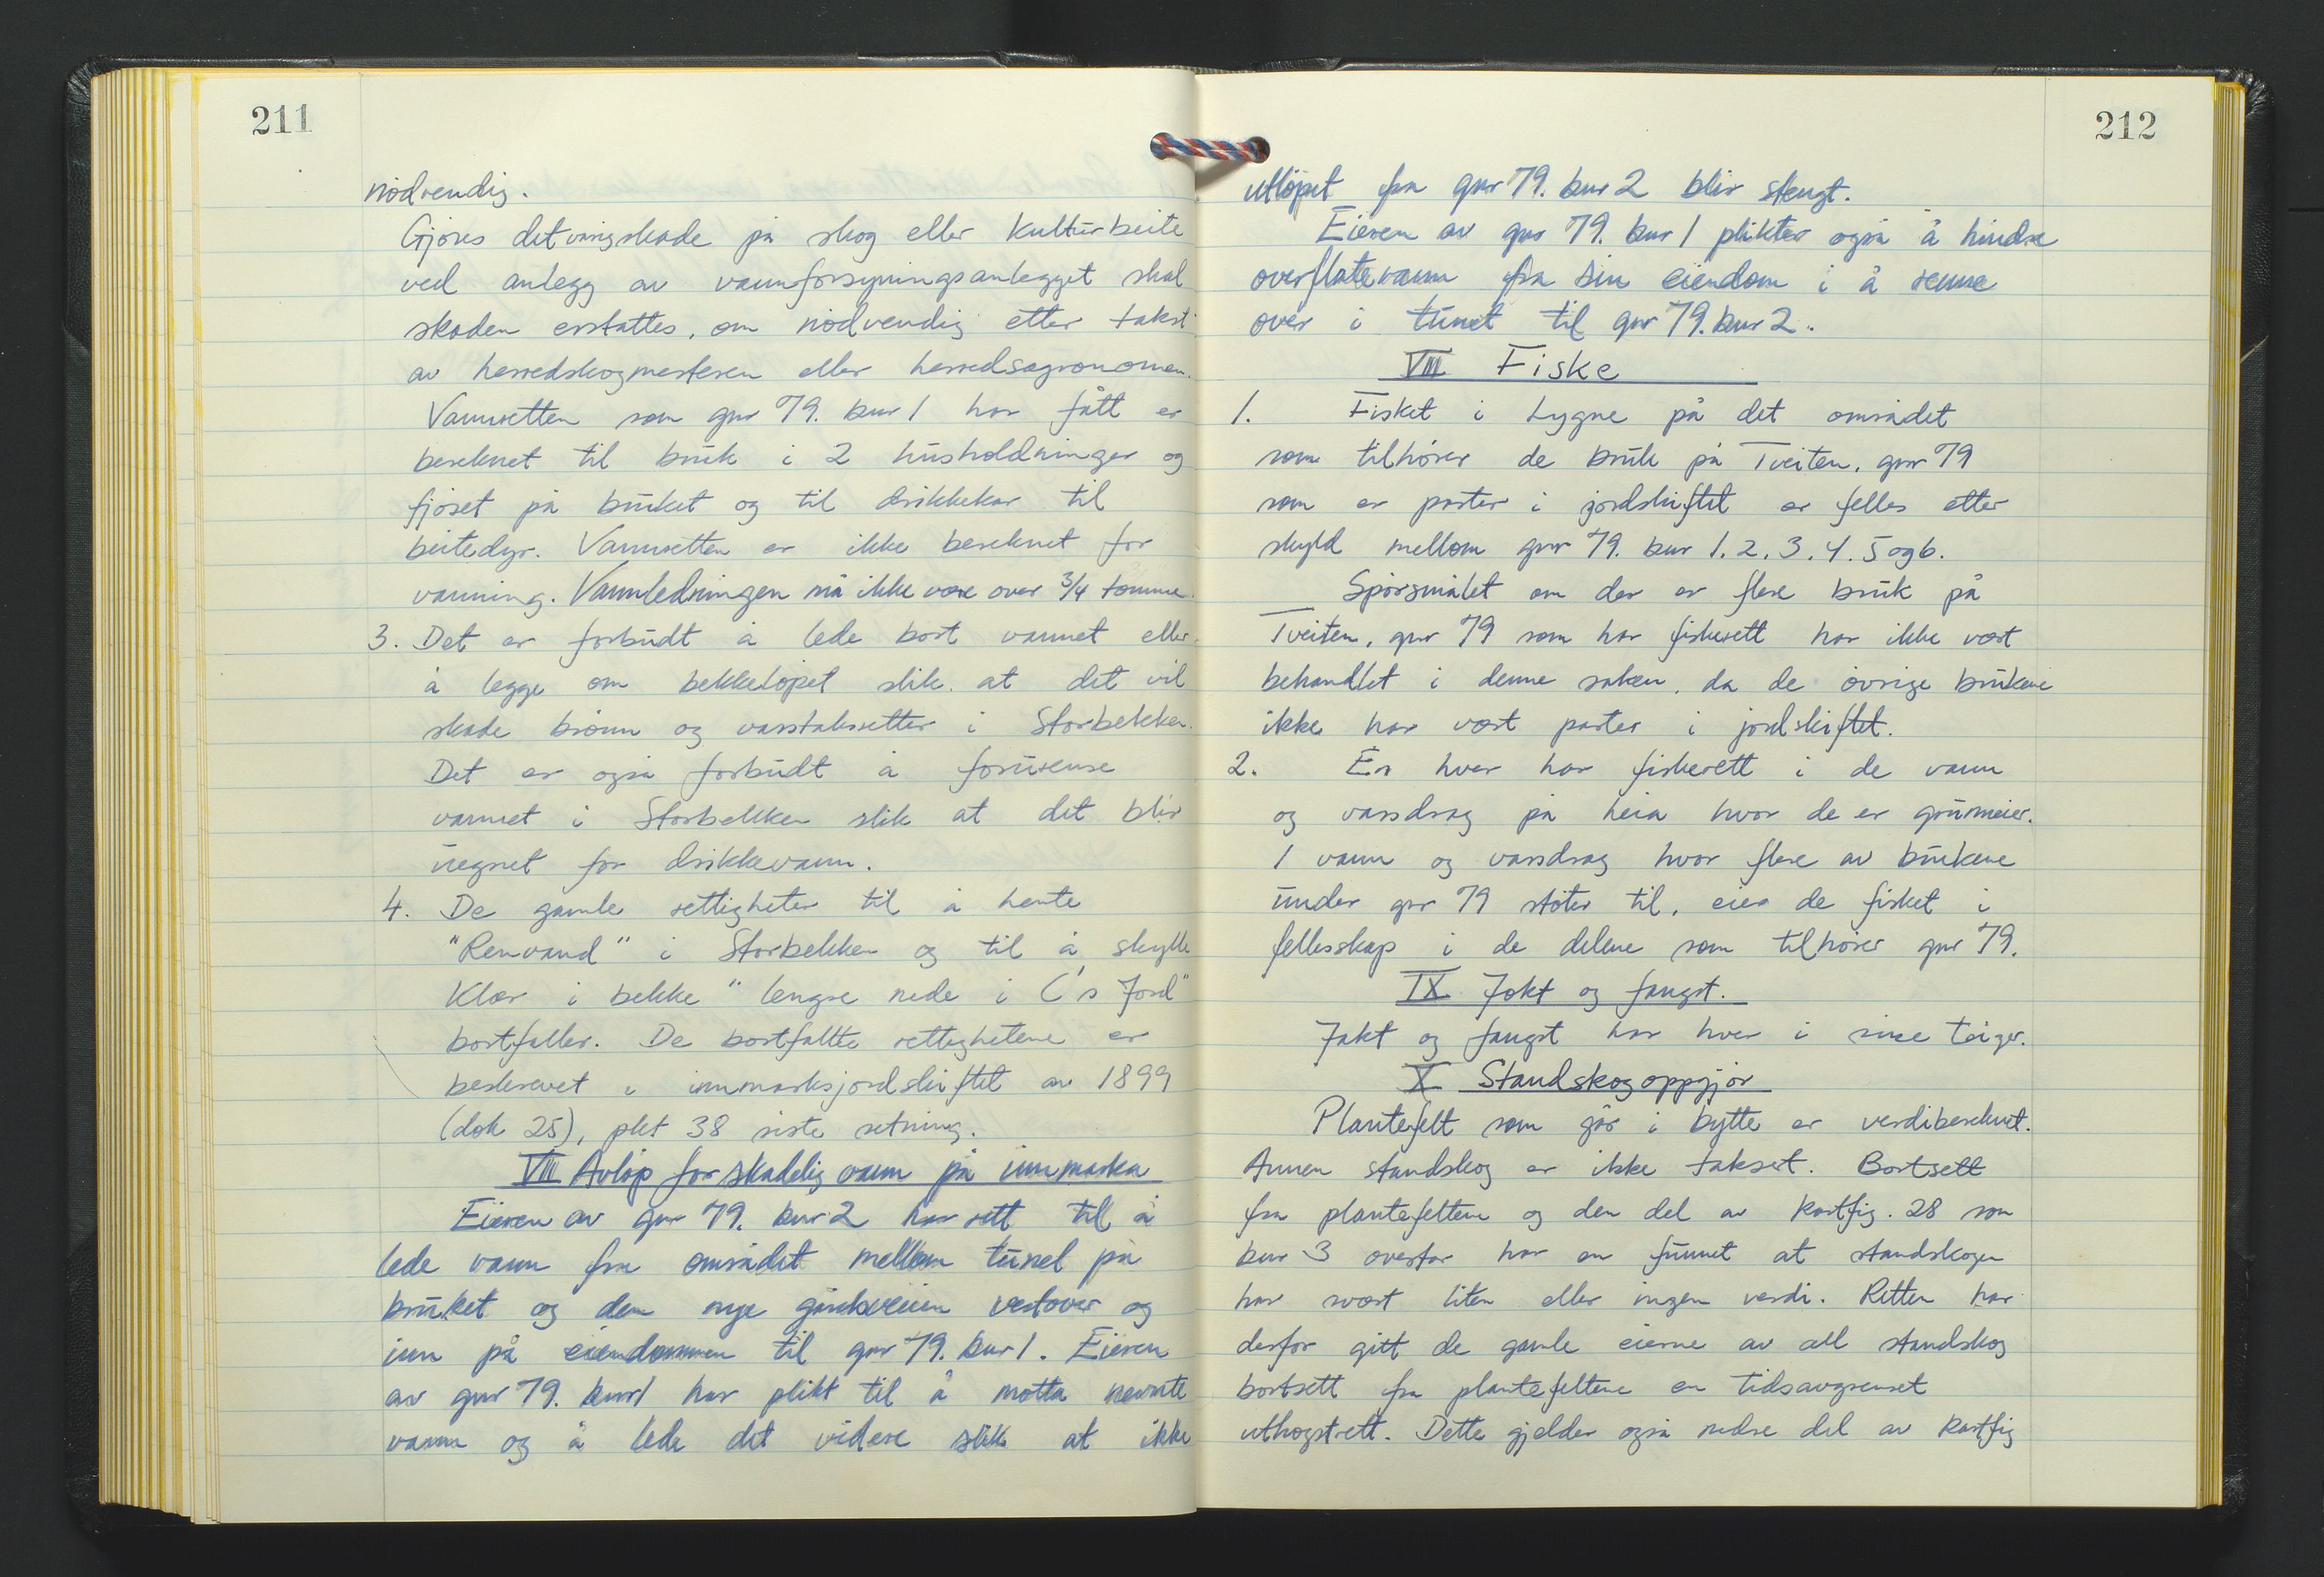 211
nödvendig.
Gjöres det varig skade på skog eller kulturbeite
ved anlegg av vannforsyningsanlegget skal
skaden erstattes, om nödvendig etter takst
av herredskogmesteren eller herredsagronomen.
Vannretten som gnr 79. bnr 1 har fått er
bereknet til bruk i 2 husholdninger og
fjöset på bruket og til drikkekar til
beitedyr. Vannretten er ikke bereknet for
vanning. Vannledningen må ikke være over 3/4 tomme.
3. Det er forbudt å lede bort vannet eller
å legge om bekkelöpet slik at det vil
skade brönn og vasstaksretter i Storbekken.
Det er også forbudt å forurense
vannet i Storbekken slik at det blir
uegnet for drikkevann.
4. De gamle rettigheter til å hente
"Renvand" i Storbekken og til å skylle
Klær i bekke "lengre nede i C's Jord"
bortfaller. De bortfallte rettighetene er
beskrevet i innmarksjordskiftet av 1899
(dok 25), pkt 38 siste setning.
VII Avlöp for skadelig vann på innmarka
Eieren av gnr 79. bnr 2 har rett til å
lede vann fra området mellom tunel på
bruket og den nye gårdsveien vestover og
inn på eiendommen til gnr 79. bnr 1. Eieren
av gnr 79. bnr 1 har plikt til å motta nevnte
vann og å lede det videre slik at ikke
212
utlöpet fra gnr 79. bnr 2 blir stengt.
Eieren av gnr 79. bnr 1 plikter også å hindre
overflatevann fra sin eiendom i å renne
over i tunet til gnr 79. bnr 2.
VIII Fiske
1. Fisket i Lygne på det området
som tilhörer de bruk på Tveiten, gnr 79
som er parter i jordskiftet er felles etter
skyld mellom gnr 79. bnr 1. 2. 3. 4. 5 og 6.
Spörsmålet om der er flere bruk på
Tveiten, gnr 79 som har fiskerett har ikke vært
behandlet i denne saken, da de övrige brukene
ikke har vært parter i jordskiftet.
2. En hver har fiskerett i de vann
og vassdrag på heia hvor de er grunneier.
I vann og vassdrag hvor flere av brukene
under gnr 79 stöter til, eier de fisket i
fellesskap i de delene som tilhörer gnr 79.
IX Jakt og fangst.
Jakt og fangst har hver i sine teiger.
X Standskogoppgjör
Plantefelt som går i bytte er verdibereknet.
Annen standskog er ikke taksert. Bortsett
fra plantefeltene og den del av kartfig. 28 som
bnr 3 overtar har en funnet at standskogen
har svært liten eller ingen verdi. Retten har
derfor gitt de gamle eierne av all standskog
bortsett fra plantefeltene en tidsavgrenset
uthogstrett. Dette gjelder også nedre del av kartfig